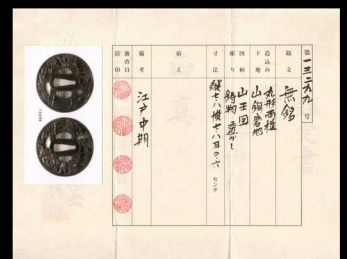 第一三二九九号
銘文 無銘
造込み 丸形両櫃
下地 山銅磨地
図柄 山王図
彫り 鋤彫 透かし
寸法 縦七・八 横七・八 耳〇・六 センチ
拵え
備考 江戸中期
審査日
印